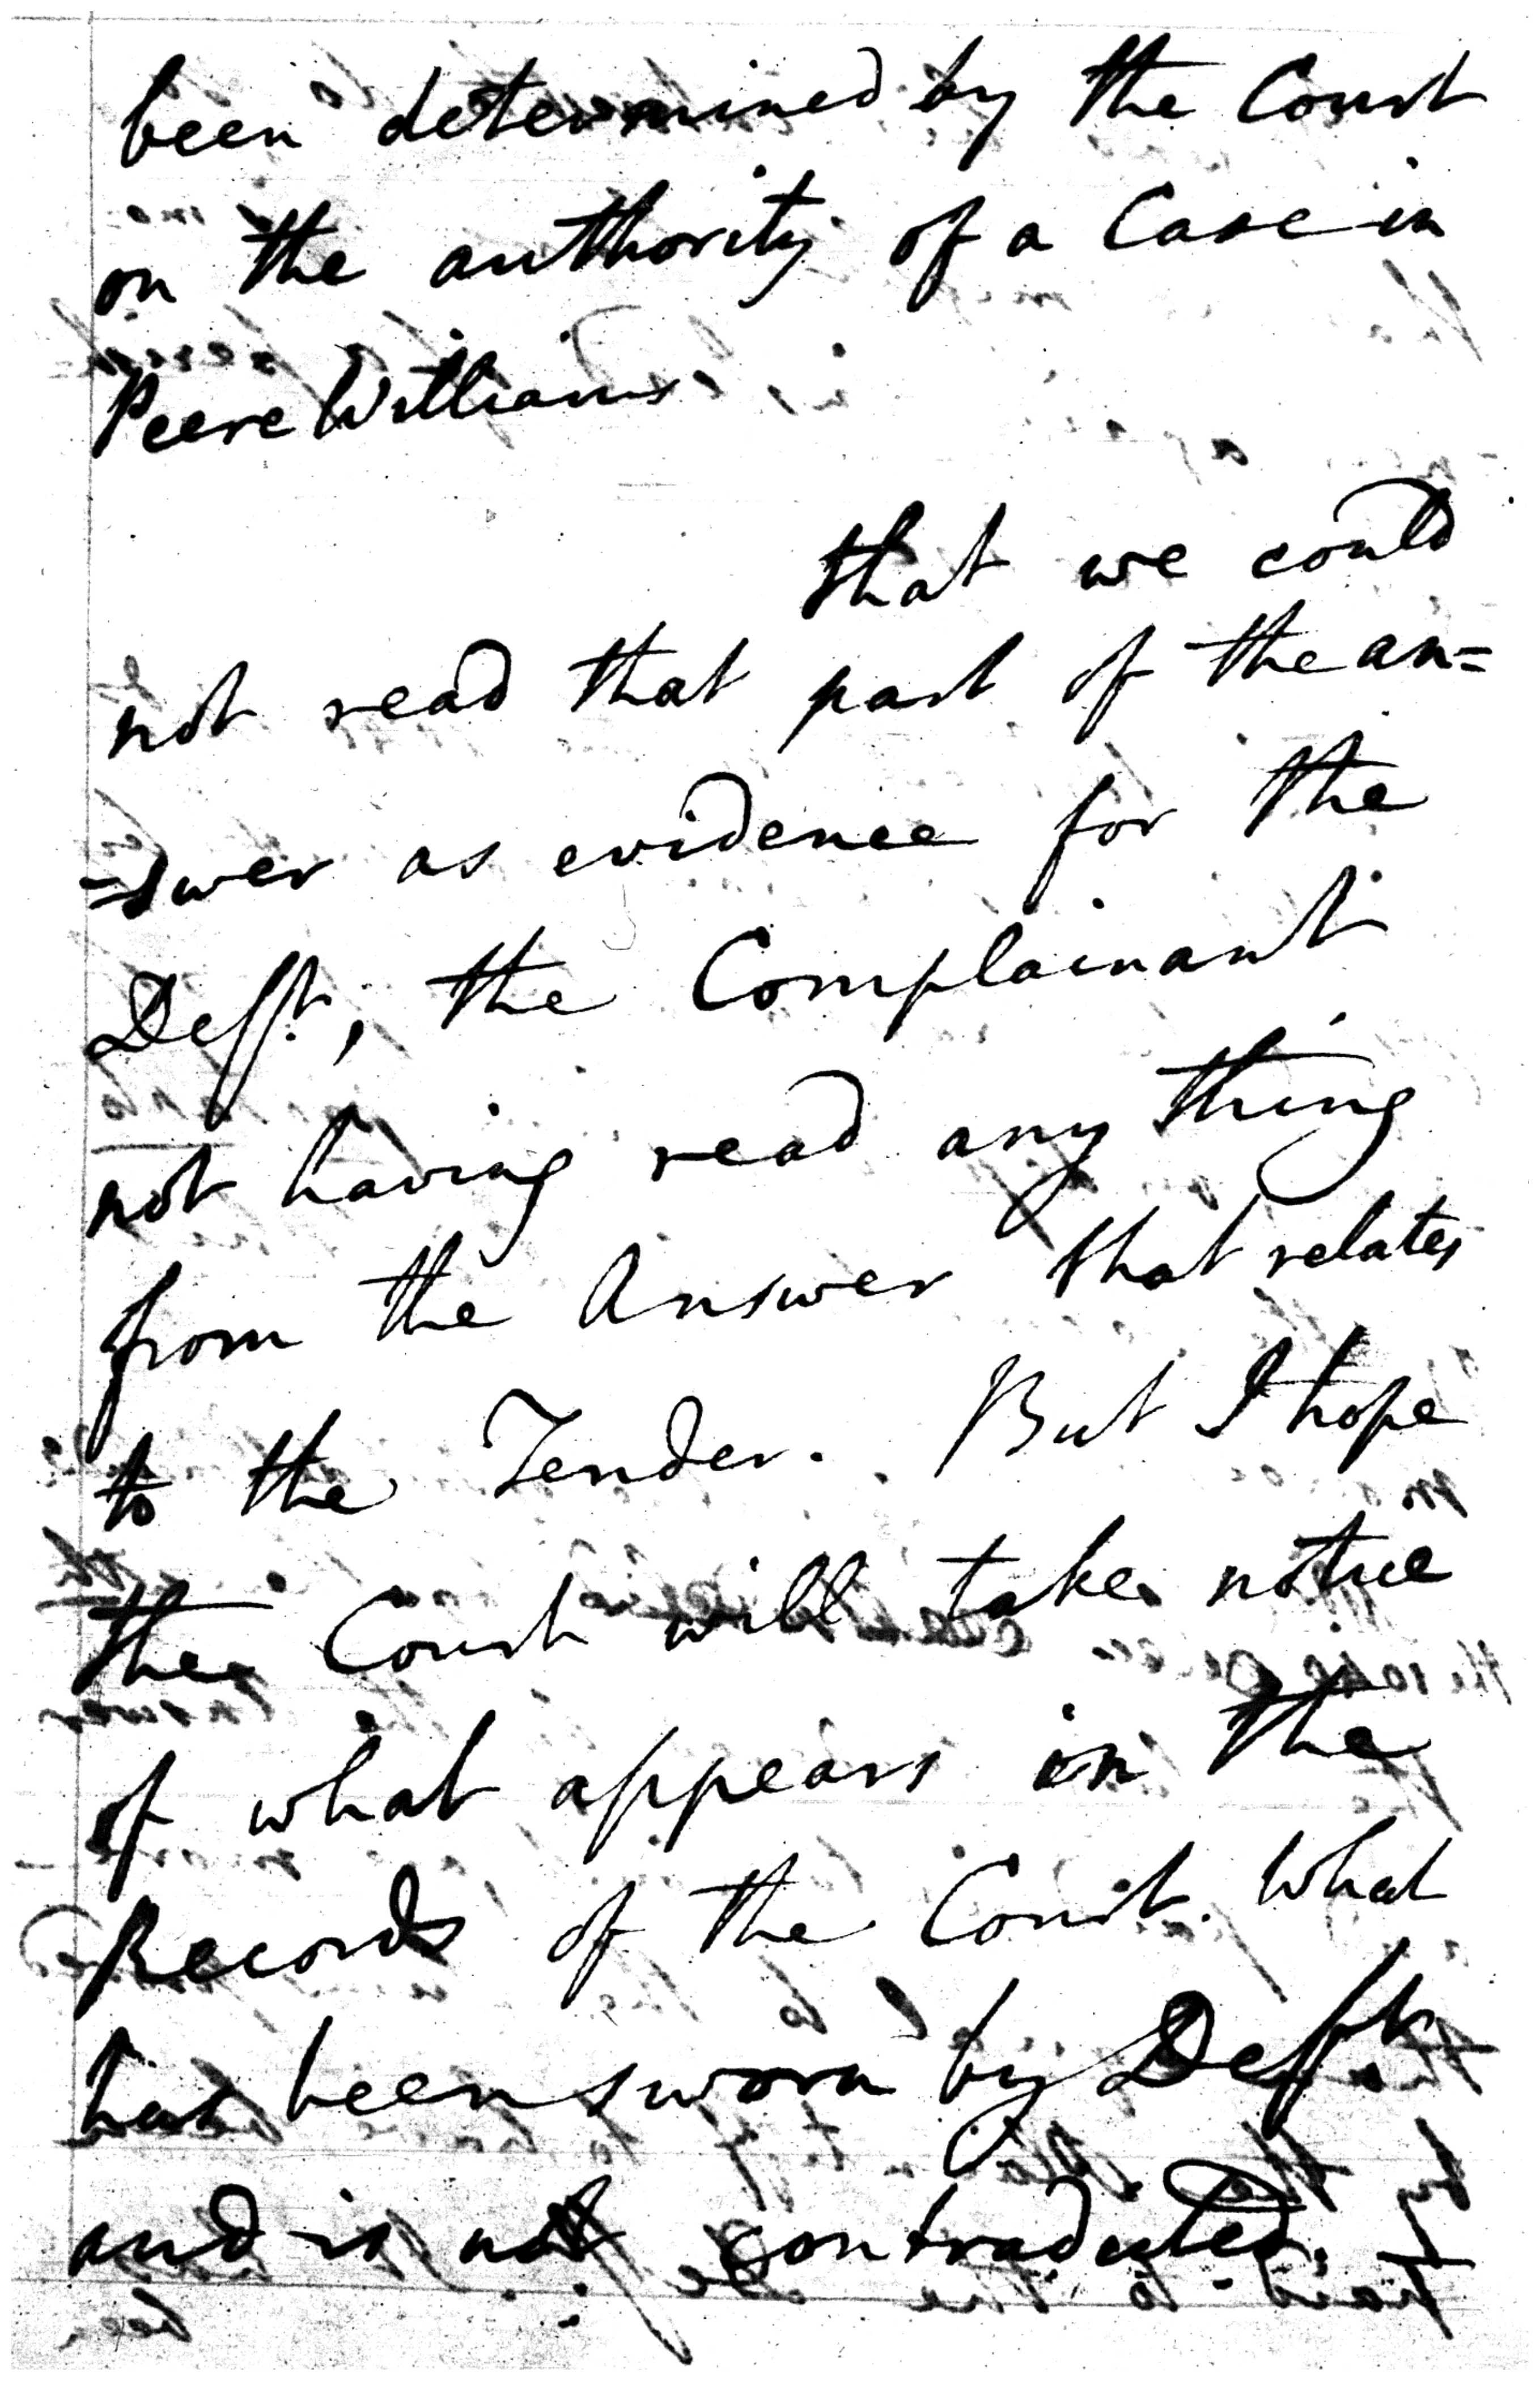 been determined by the Court
on the authority of a Case in
Peere Williams
that we could
not read that part of the an=
=swer as evidence for the
Defft., the Complainant
not having read any thing
from the Answer that relates
to the Tender. But I hope
the Court will take notice
of what appears in the
Records of the Court. What
has been sworn by Defft.
and is not contradicted.